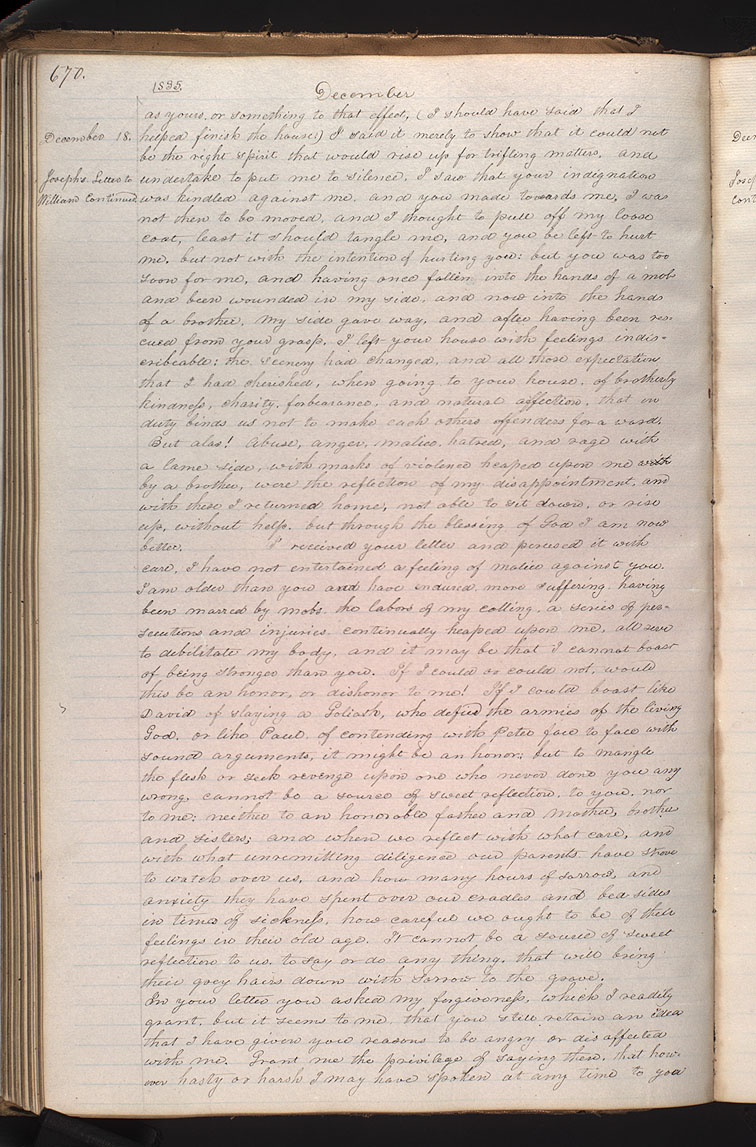 670.
1835.
December
as yours, or something to that effect, (I should have said that I
December 18.
helped finish the house;) I said it merely to show that it could not
be the right spirit that would rise up for trifling matters, and
Joseph's Letter to
undertake to put me to silence, I saw that your indignation
William Continued
was kindled against me, and you made towards me, I was
not then to be moved, and I thought to pull off my loose
coat, least it should tangle me, and you be left to hurt
me, but not with the intention of hurting you: but you was too
soon for me, and having once fallen into the hands of a mob
and been wounded in my side, and now into the hands
of a brother, my side gave way, and after having been res-
cued from your grasp, I left your house with feelings indis-
cribeable: the scenery had changed, and all those expectation
that I had cherished, when going to your house, of brotherly
kindness, charity, forbearance, and natural affection, that in
duty binds us not to make each others offenders for a word.
But alas! Abuse, anger, malice, hatred, and rage with
a lame side, with marks of violence heaped upon me with
by a brother, were the reflection of my disappointment, and
with these I returned home, not able to sit down, or rise
up, without help, but through the blessing of God I am now
better. I received your letter and perused it with
care, I have not entertained a feeling of malice against you.
I am older than you and have endured more suffering, having
been marred by mobs, the labors of my calling, a series of per-
secutions and injuries continually heaped upon me, all serve
to debilitate my body, and it may be that I cannot boast
of being stronger than you. If I could or could not, would
this be an honor, or dishonor to me! If I could boast like
David of slaying a Goliath, who defied the armies of the living
God, or like Paul, of contending with Peter face to face with
sound arguments, it might be an honor; but to mangle
the flesh or seek revenge upon one who never done you any
wrong, cannot be a source of sweet reflection, to you, nor
to me; neither to an honorable father and mother, brothers
and sisters; and when we reflect with what care, and
with what unremitting diligence our parents have strove
to watch over us, and how many hours of sorrow, and
anxiety they have spent over our cradles and bed sides
in times of sickness, how careful we ought to be of their
feelings in their old age. It cannot be a source of sweet
reflection to us, to say or do any thing, that will bring
their grey hairs down with sorrow to the grave.
In your letter you asked my forgiveness, which I readily
grant, but it seems to me, that you still retain an idea
that I have given you reasons to be angry or disaffected
with me. Grant me the privilege of saying then, that how-
ever hasty or harsh I may have spoken at any time to you